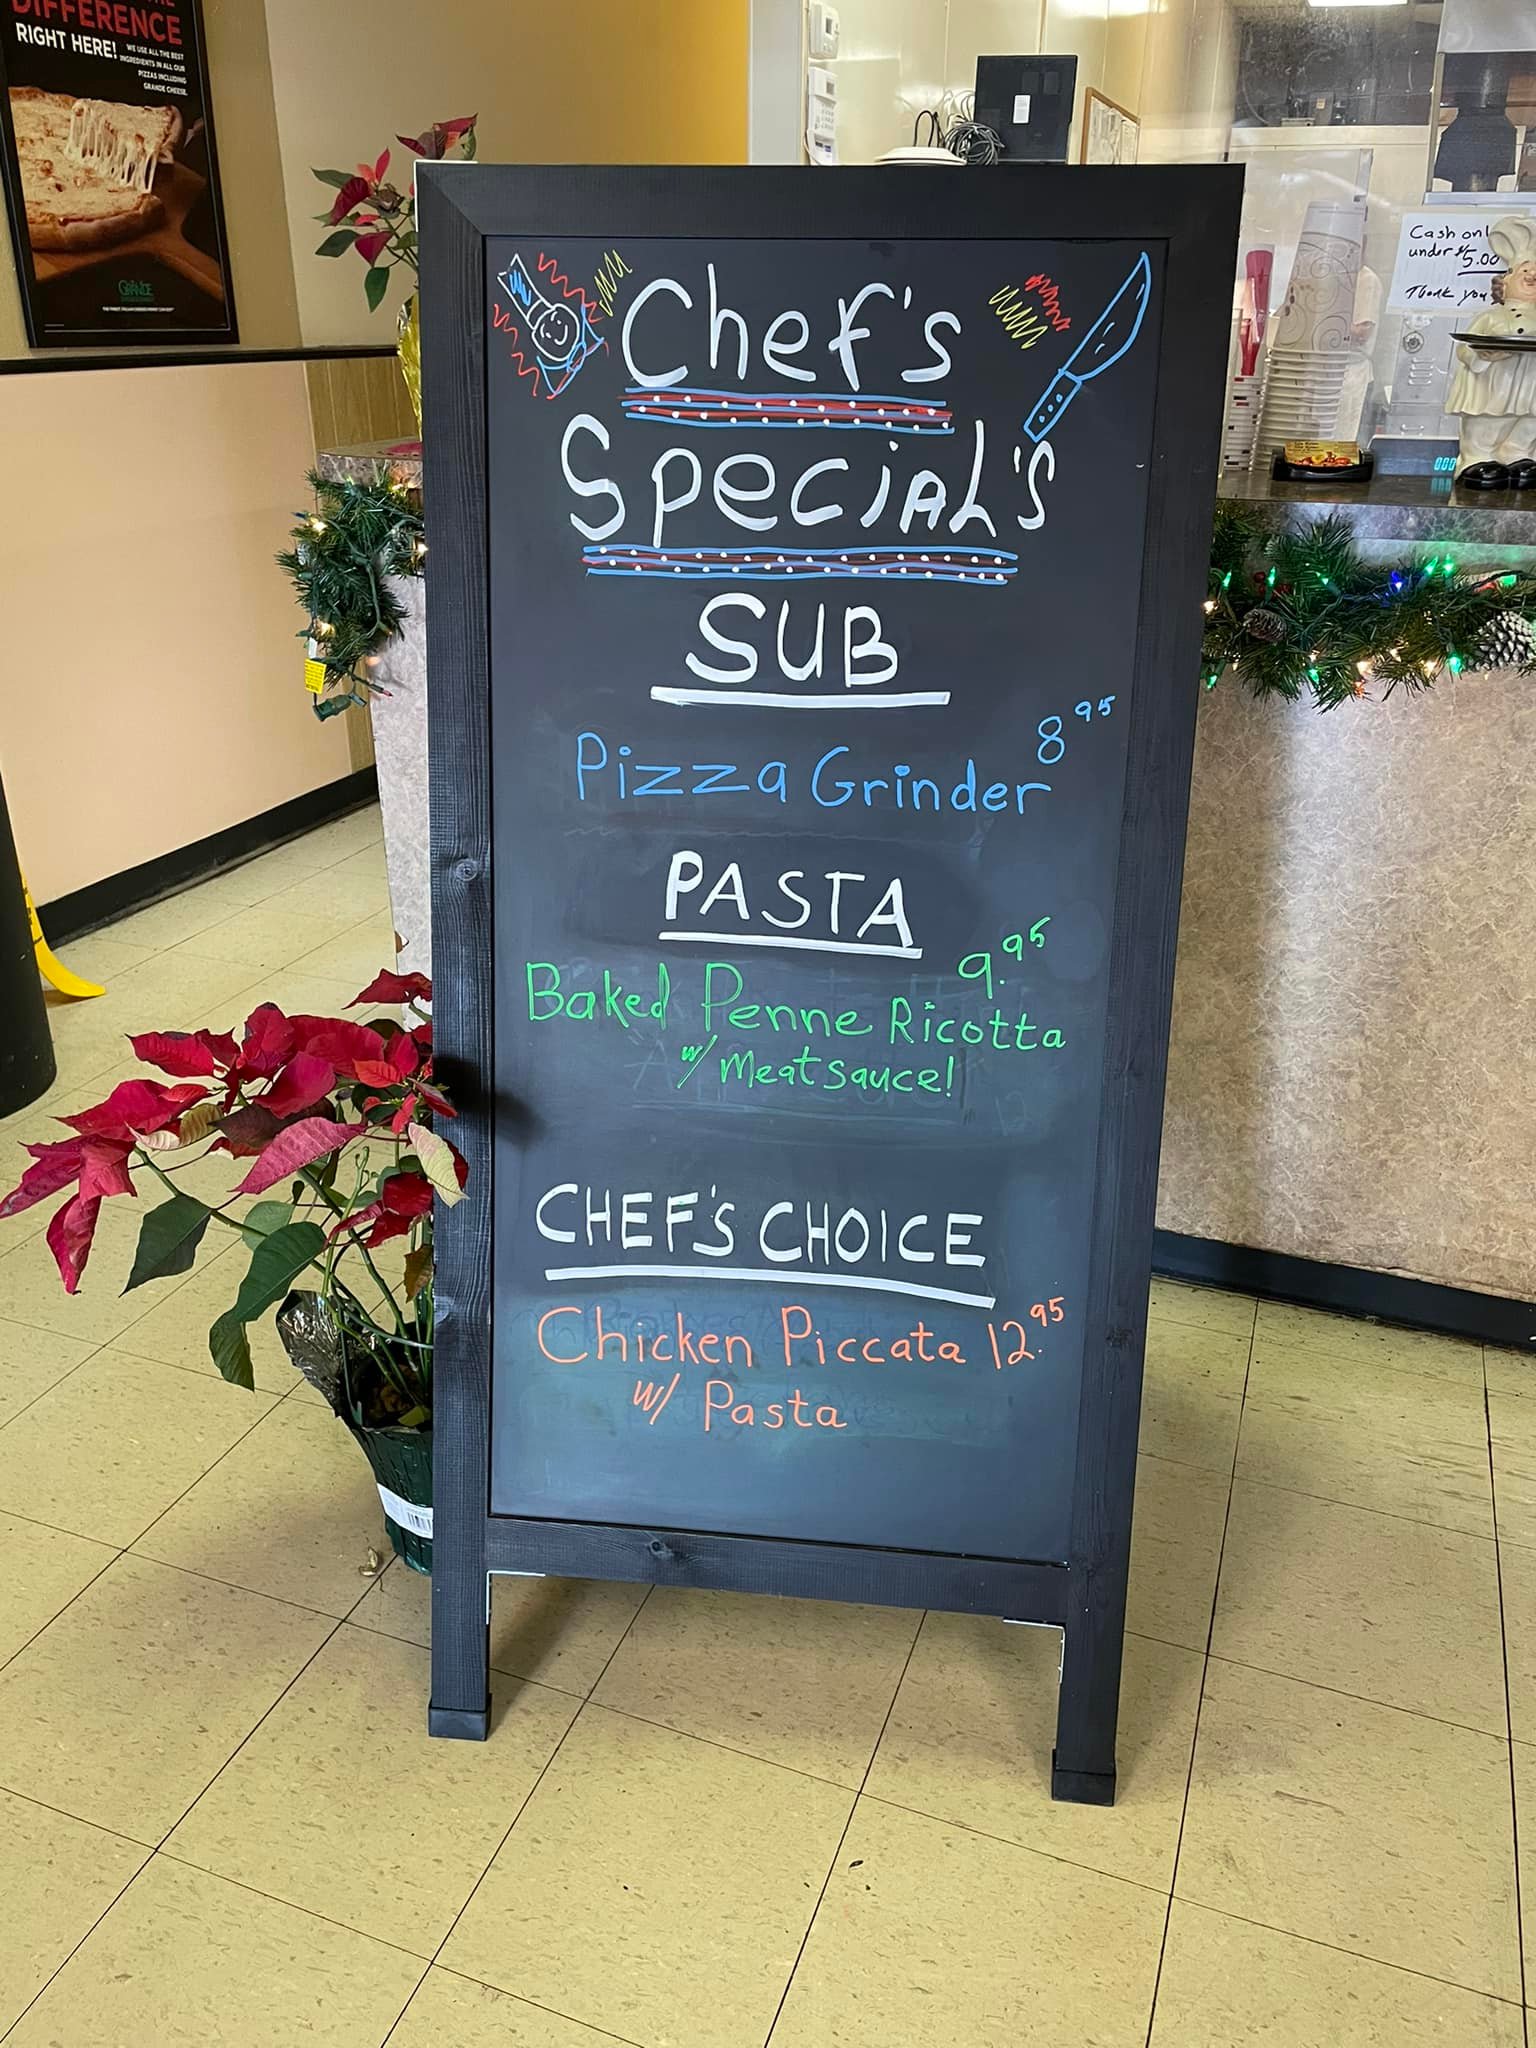 DIFFERENCE
RIGHT HERE!
WE USE ALL THE BEST
INGREDIENTS IN ALL OUR
PIZZAS INCLUDING
GRANDE CHEESE.
GRANDE
Chef's
Special's
SUB
Pizza Grinder 8 95
PASTA
Baked Penne Ricotta 9.95
w/ Meatsauce!
CHEF'S CHOICE
Chicken Piccata 12.95
w/ Pasta
Cash onl
under $5.00
Thank you